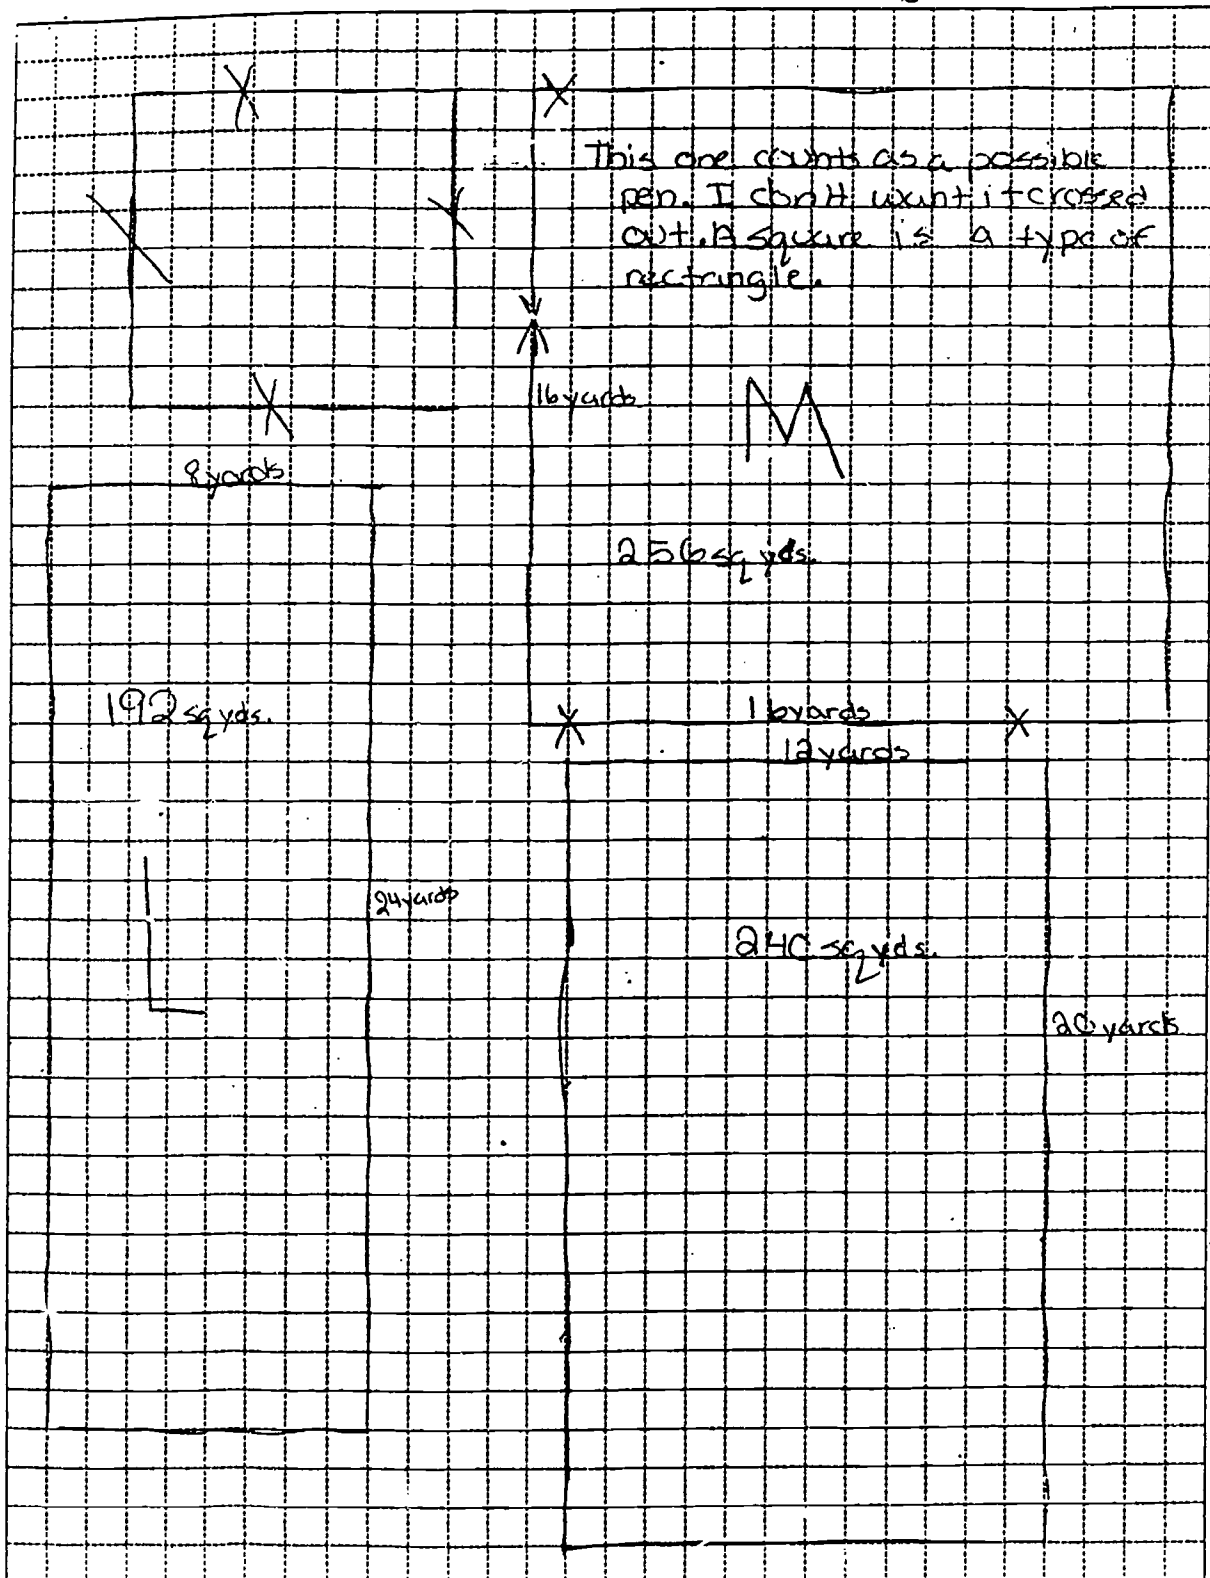 This one counts as a possible
pen. I don't want it crossed
out. A square is a type of
rectringle.
16 yards
M
8 yards
256 sq yds.
192 sq yds.
16 yards
12 yards
L
24 yards
240 sq yds.
20 yards